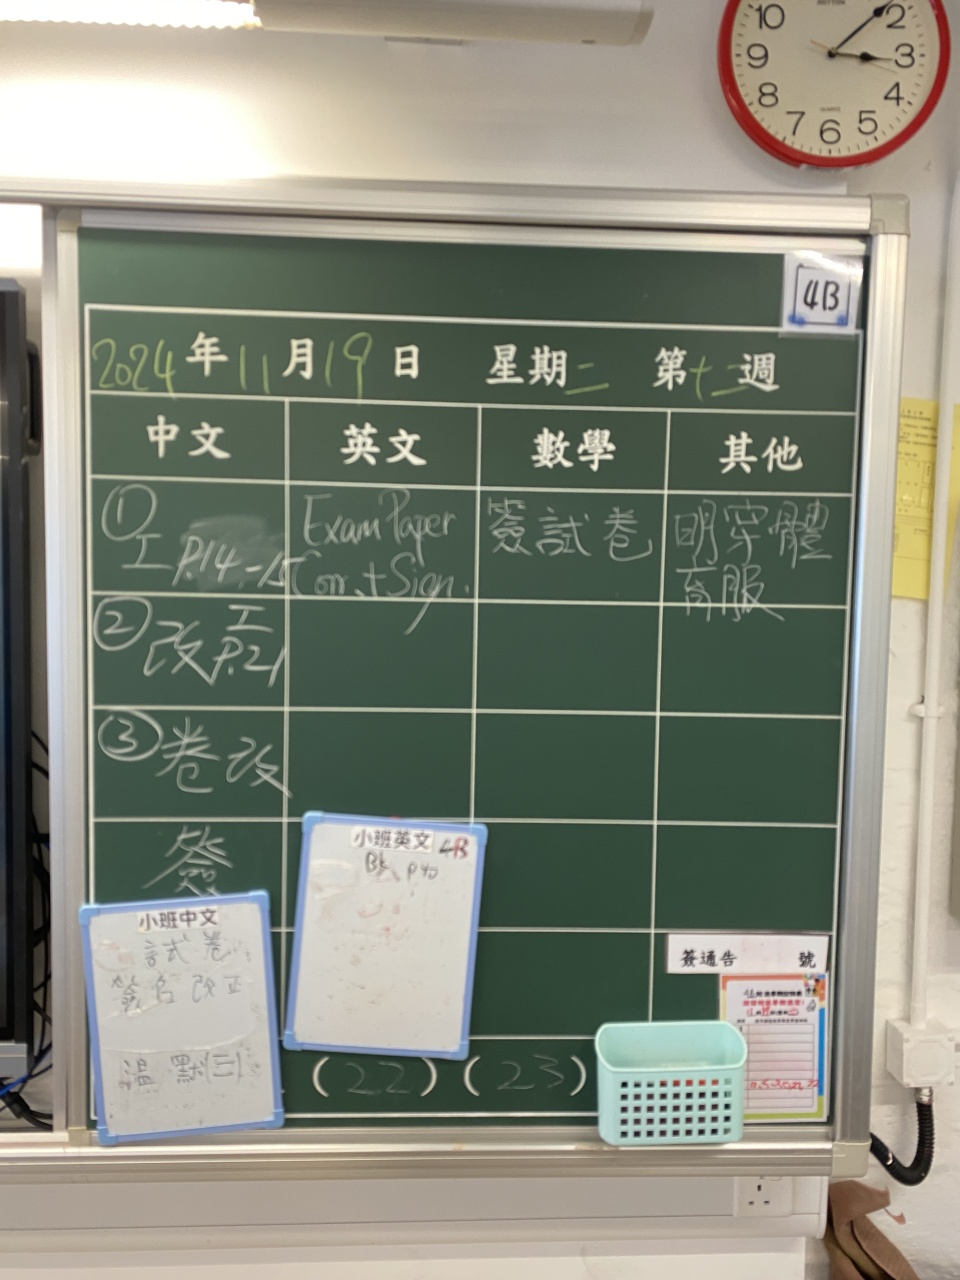 RHYTHM
10 2
9 3
8 4
7 6 5
QUARTZ
4B
2024年11月19日 星期二 第十二週
中文 英文 數學 其他
① 工 P.14-15
Exam Paper
Corr. + Sign.
簽試卷
明穿體
育服
② 改工 P.21
③ 卷改
簽
小班英文 4B
Bk P40
小班中文
試卷
簽名改正
溫 默(二)
簽通告 號
(22) (23)